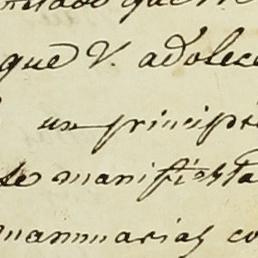 que V. adolec
un principi
se manifiesta
mammarias co